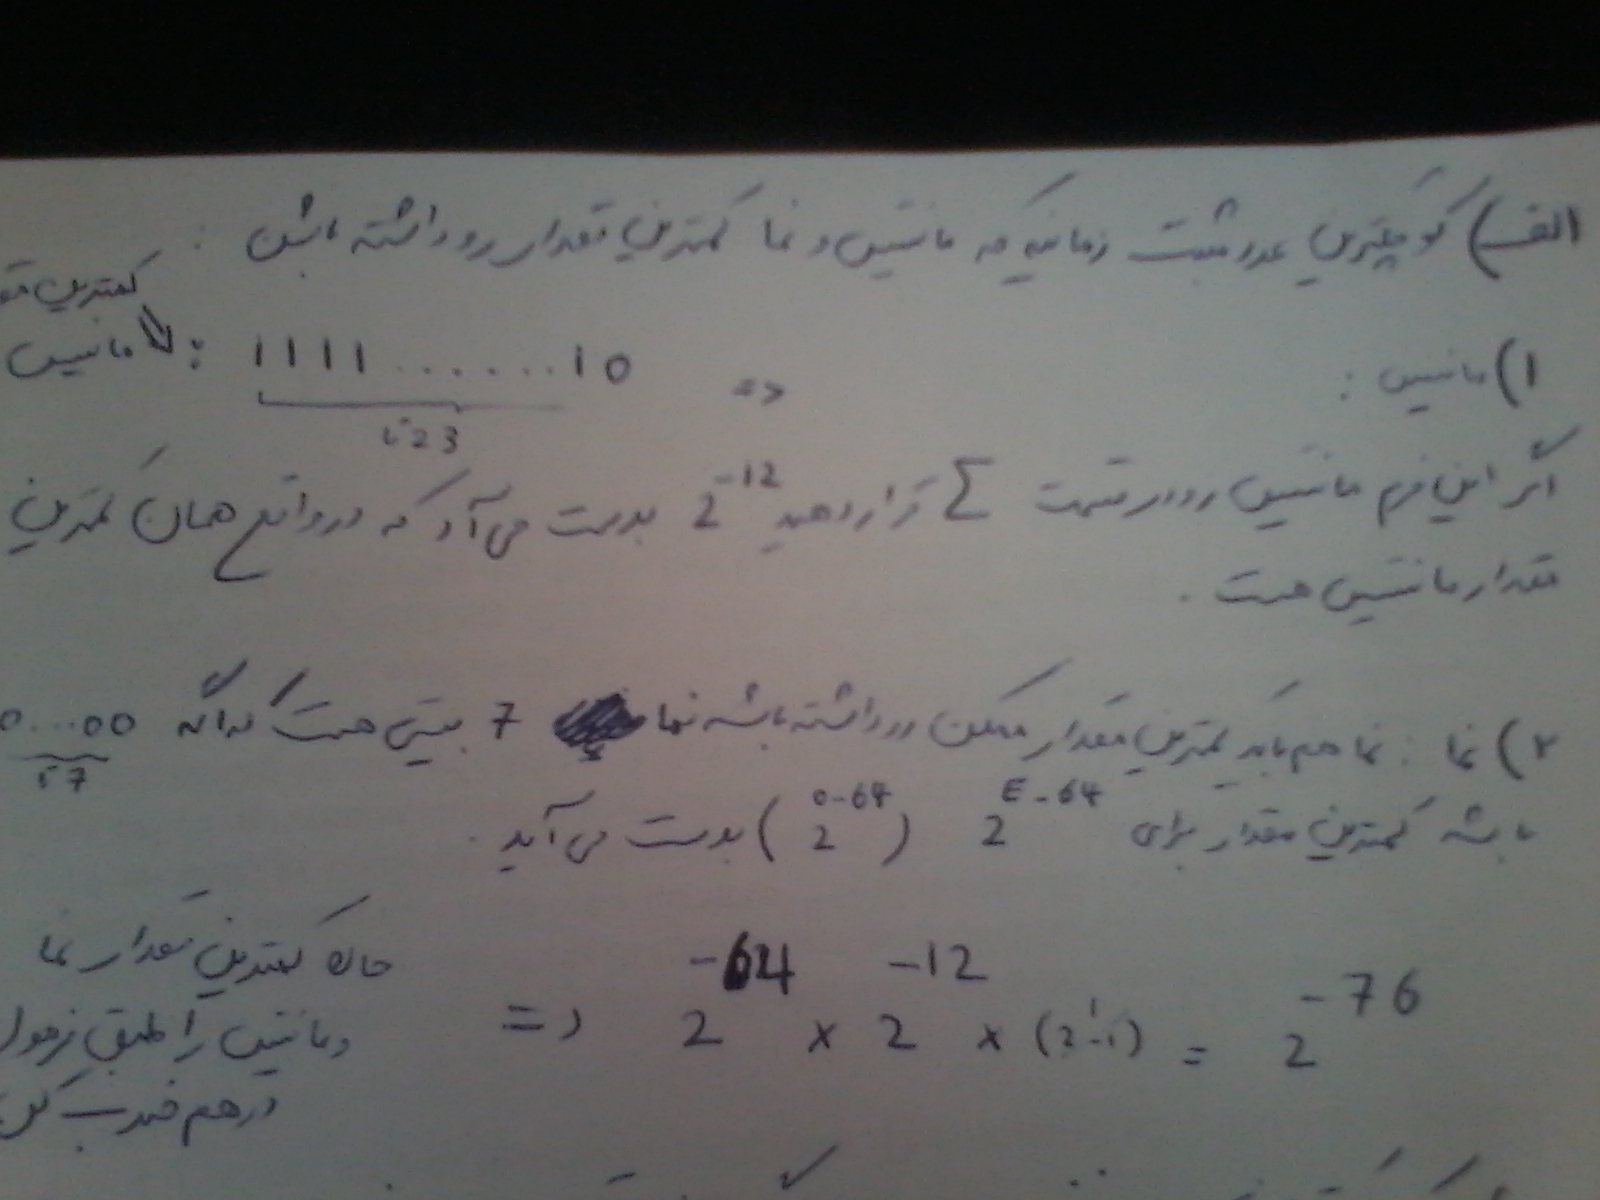 الف) کوچکترین عدد مثبت زمانیکه که مانتیس و نما کمترین مقدار رو داشته باشن :
کمترین
۱) مانتیس : => 1111.......10 : مانتیس
23 تا
اگر این فرم مانتیس رو در قسمت Σ قرار دهید 2^-12 بدست می‌آد که در واقع همان کمترین
مقدار مانتیس هست .
۲) نما : نما هم باید کمترین مقدار ممکن رو داشته باشه نما 7 بیتی هست که اگه 0...00
7 تا
باشه کمترین مقدار برای 2^E-64 (2^0-64) بدست می‌آید .
حالا کمترین مقدار نما
و مانتیس را طبق فرمول
در هم ضرب
=> 2^-64 x 2^-12 x (2^1-1) = 2^-76